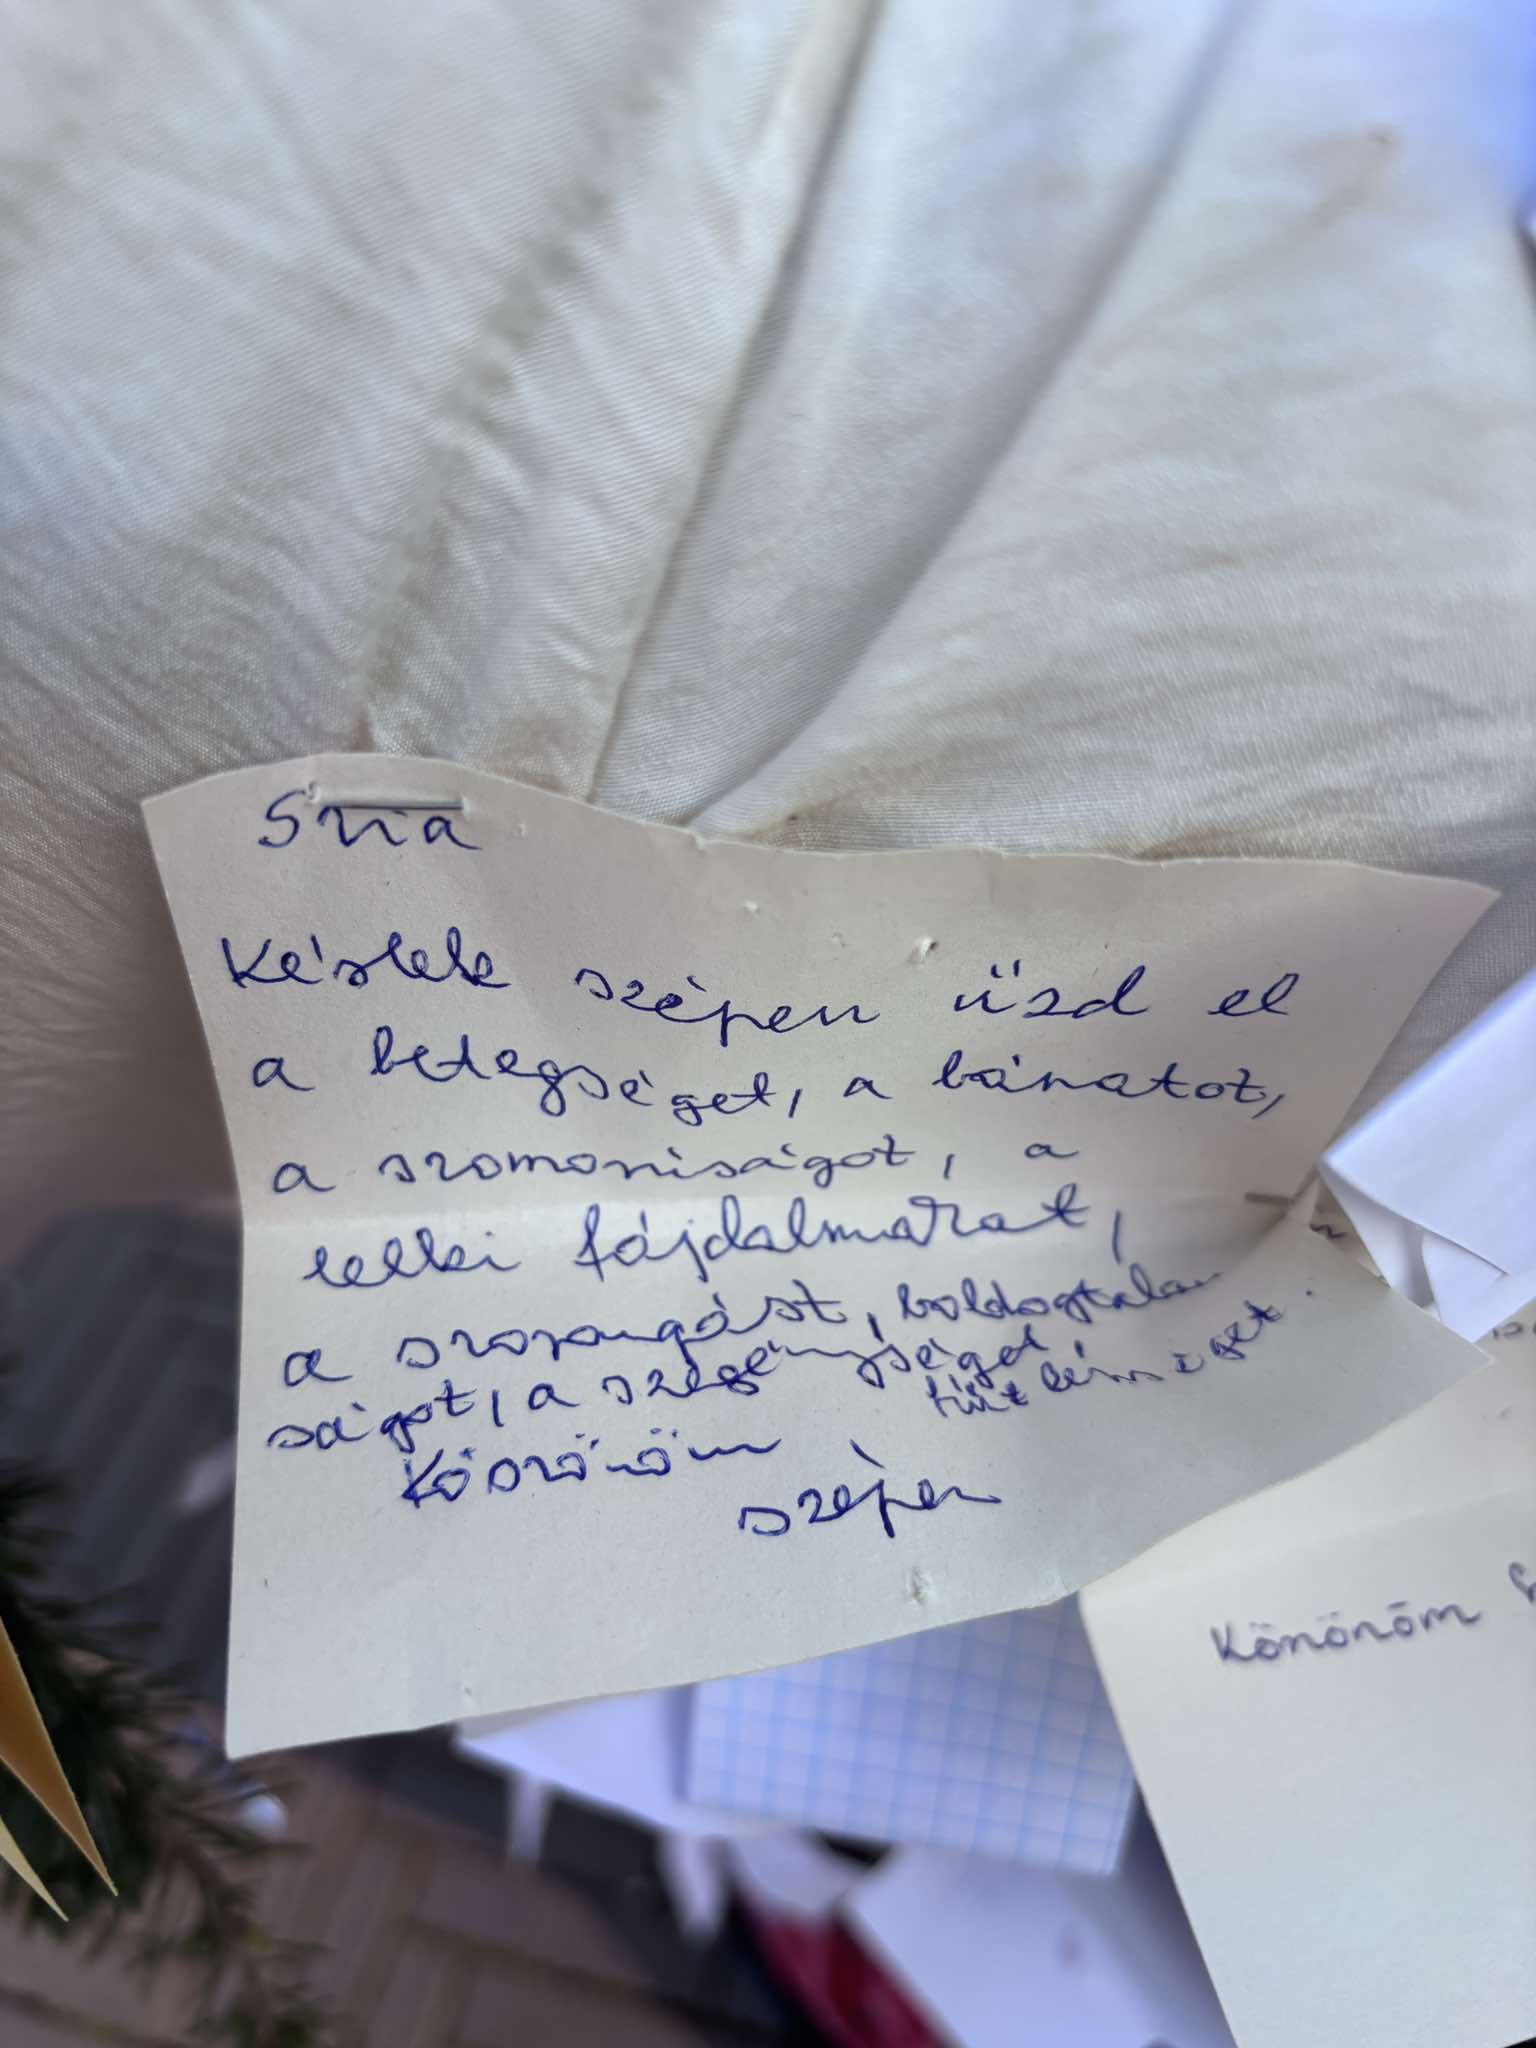 Szia
Kérlek szépen űzd el
a betegséget, a bánatot,
a szomorúságot, a
lelki fájdalmakat,
a szorongást, boldogtalan
ságot, a szegénységet
türelmességet.
Köszönöm
szépen
Könöröm